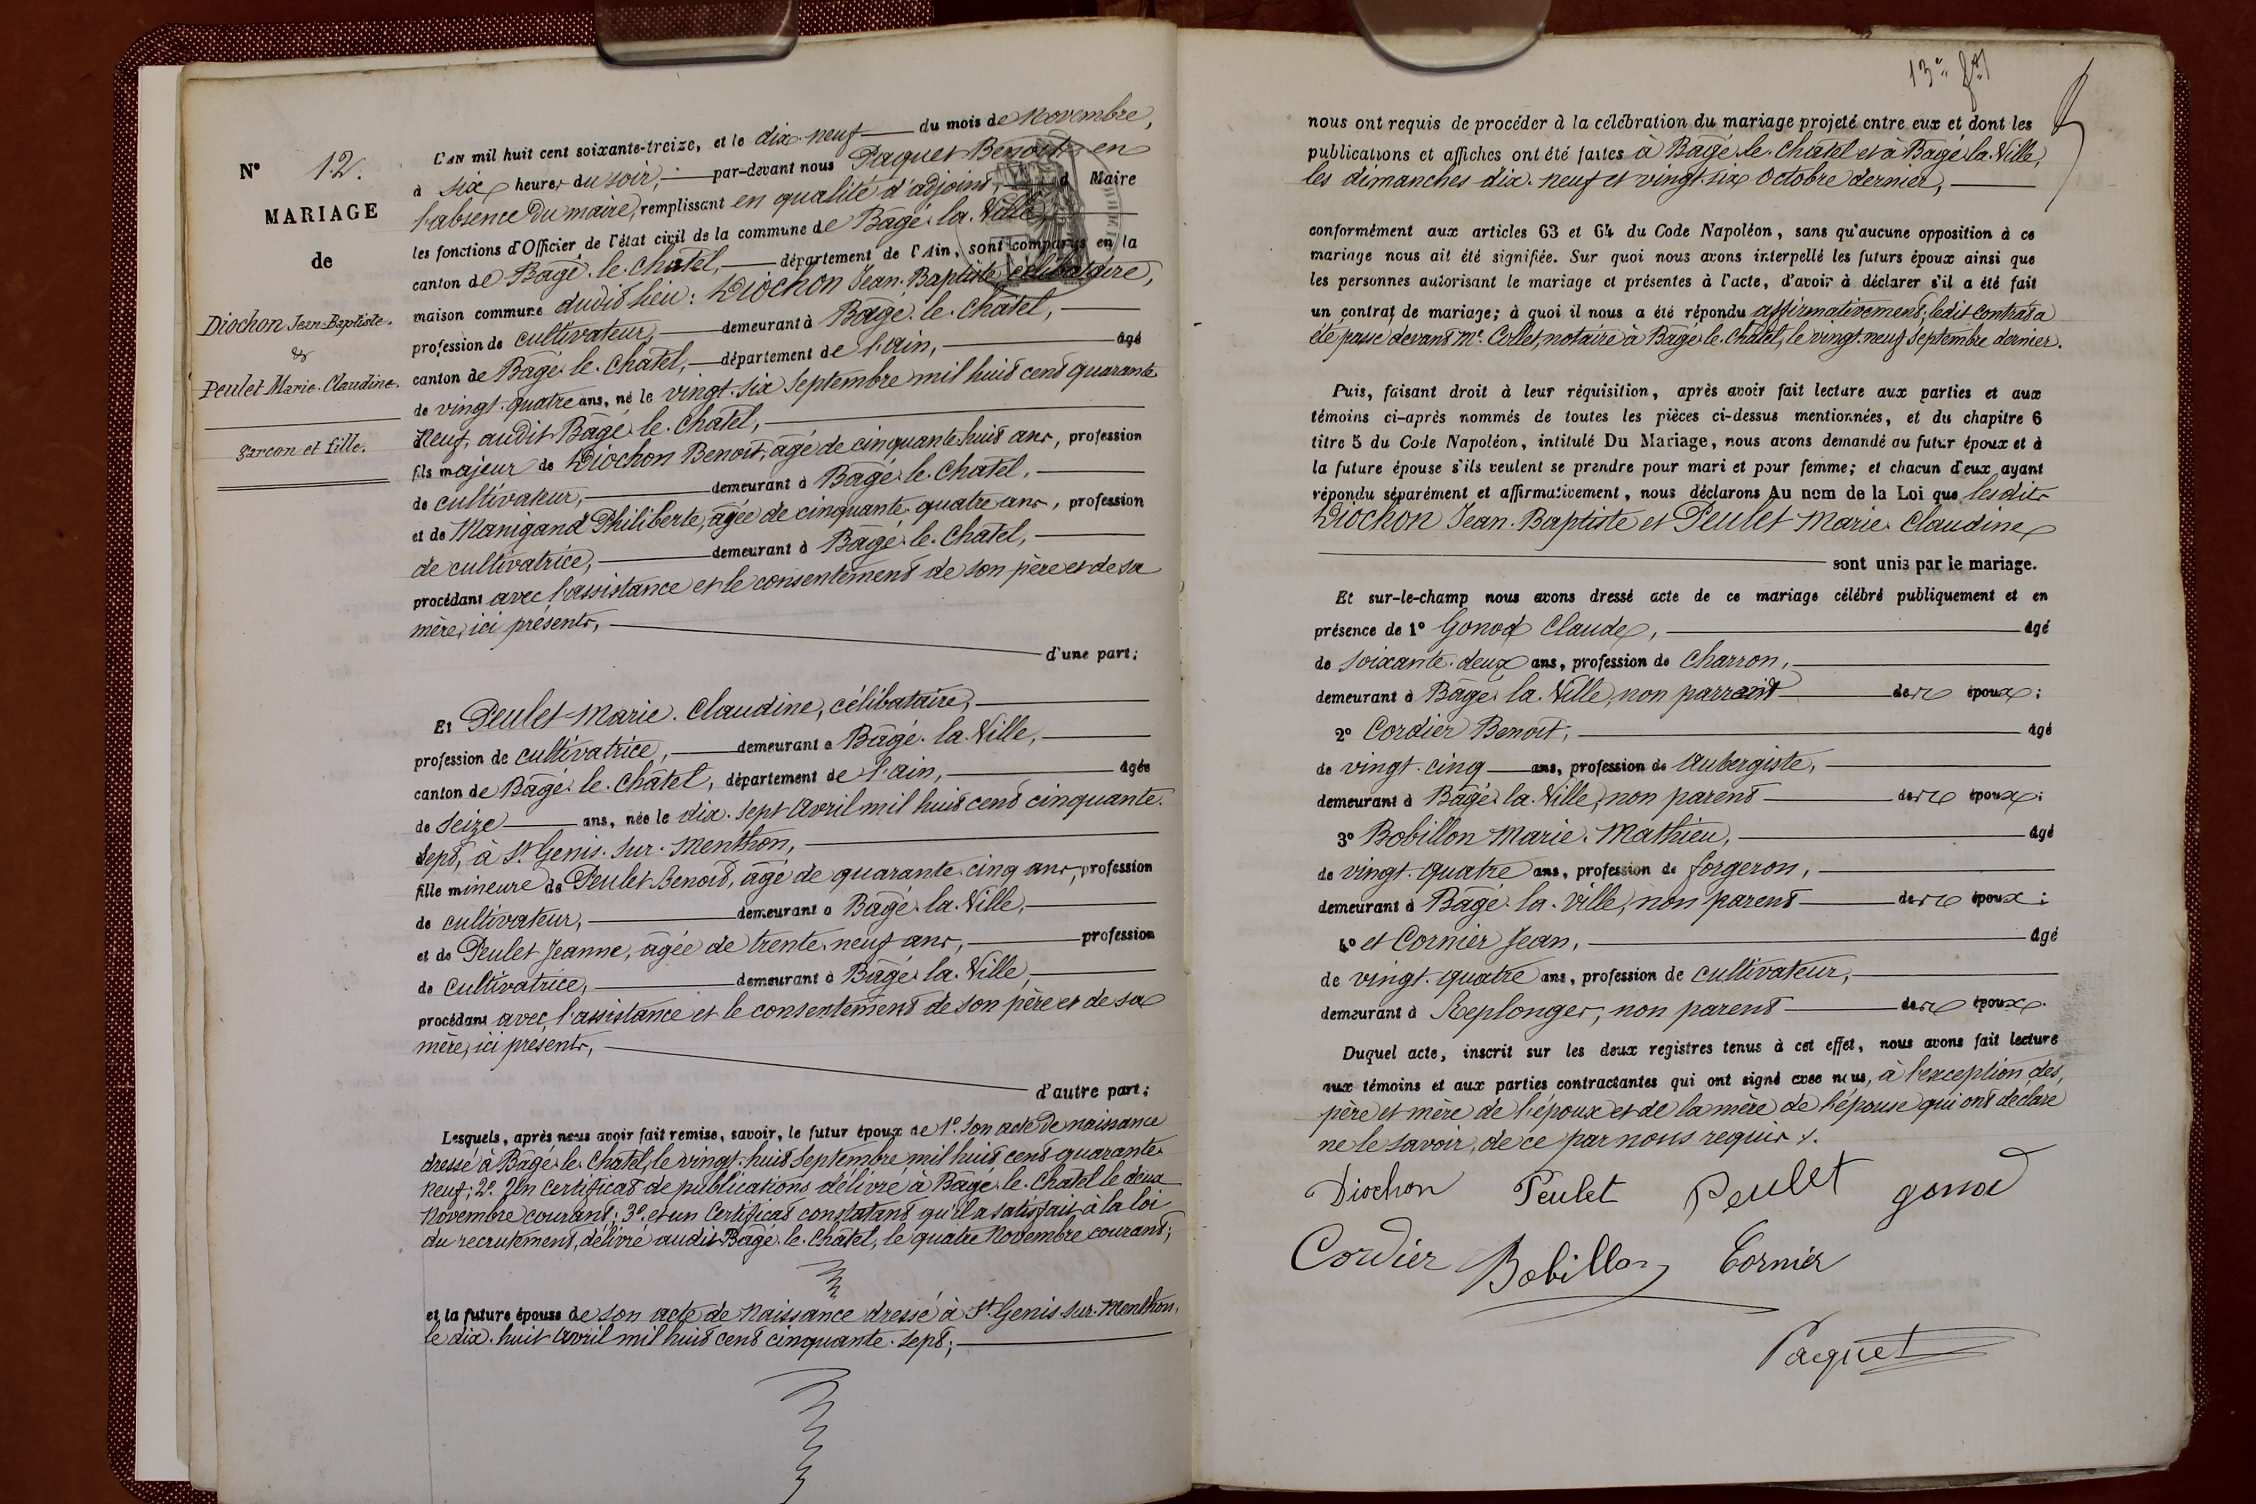 N° 12.
MARIAGE
de
Diochon Jean-Baptiste.
&
Peulet Marie-Claudine.
garçon et fille.
L'AN mil huit cent soixante-treize, et le dix-neuf du mois de Novembre,
à six heures du soir, par-devant nous Paquet Benoit en
l'absence du maire, remplissant en qualité d'adjoint, d Maire
les fonctions d'Officier de l'état civil de la commune de Bâgé-la-Ville,
canton de Bâgé-le-Châtel, département de l'Ain, sont comparus en la
maison commune dudit lieu: Diochon Jean-Baptiste, célibataire,
profession de cultivateur, demeurant à Bâgé-le-Châtel,
canton de Bâgé-le-Châtel, département de l'ain, âgé
de vingt-quatre ans, né le vingt-six Septembre mil huit cent quarante
neuf, audit Bâgé-le-Châtel,
fils majeur de Diochon Benoit, âgé de cinquante-huit ans, profession
de cultivateur, demeurant à Bâgé-le-Châtel,
et de Manigand Philiberte, âgée de cinquante-quatre ans, profession
de cultivatrice, demeurant à Bâgé-le-Châtel,
procédant avec l'assistance et le consentement de son père et de sa
mère, ici présents,
d'une part;
Et Peulet Marie-Claudine, célibataire,
profession de cultivatrice, demeurant à Bâgé-la-Ville,
canton de Bâgé-le-Châtel, département de l'ain, âgée
de seize ans, née le dix-sept Avril mil huit cent cinquante-
sept, à St Genis-sur-Menthon,
fille mineure de Peulet Benoit, âgé de quarante-cinq ans, profession
de cultivateur, demeurant à Bâgé-la-Ville,
et de Peulet Jeanne, âgée de trente-neuf ans, profession
de cultivatrice, demeurant à Bâgé-la-Ville,
procédant avec l'assistance et le consentement de son père et de sa
mère, ici présents,
d'autre part;
Lesquels, après nous avoir fait remise, savoir, le futur époux de 1°. son acte de naissance
dressé à Bâgé-le-Châtel, le vingt-huit Septembre mil huit cent quarante-
neuf; 2°. Un certificat de publications délivré à Bâgé-le-Châtel le deux
Novembre courant; 3°. et un Certificat constatant qu'il a satisfait à la loi
du recrutement, délivré audit Bâgé-le-Châtel, le quatre Novembre courant;
et la future épouse de son acte de Naissance dressé à St Genis-sur-Menthon,
le dix-huit Avril mil huit cent cinquante-sept;
13e ft
nous ont requis de procéder à la célébration du mariage projeté entre eux et dont les
publications et affiches ont été faites à Bâgé-le-Châtel et à Bâgé-la-Ville,
les dimanches dix-neuf et vingt-six Octobre dernier,
conformément aux articles 63 et 64 du Code Napoléon, sans qu'aucune opposition à ce
mariage nous ait été signifiée. Sur quoi nous avons interpellé les futurs époux ainsi que
les personnes autorisant le mariage et présentes à l'acte, d'avoir à déclarer s'il a été fait
un contrat de mariage; à quoi il nous a été répondu affirmativement; ledit contrat a
été passé devant Me Collet, notaire à Bâgé-le-Châtel, le vingt-neuf Septembre dernier.
Puis, faisant droit à leur réquisition, après avoir fait lecture aux parties et aux
témoins ci-après nommés de toutes les pièces ci-dessus mentionnées, et du chapitre 6
titre 5 du Code Napoléon, intitulé Du Mariage, nous avons demandé au futur époux et à
la future épouse s'ils veulent se prendre pour mari et pour femme; et chacun d'eux ayant
répondu séparément et affirmativement, nous déclarons Au nom de la Loi que lesdits
Diochon Jean-Baptiste et Peulet Marie-Claudine
sont unis par le mariage.
Et sur-le-champ nous avons dressé acte de ce mariage célébré publiquement et en
présence de 1° Gonod Claude, âgé
de soixante-deux ans, profession de Charron,
demeurant à Bâgé-la-Ville, non parent des époux;
2° Cordier Benoit, âgé
de vingt-cinq ans, profession de Aubergiste,
demeurant à Bâgé-la-Ville, non parent des époux;
3° Bobillon Marie-Mathieu, âgé
de vingt-quatre ans, profession de forgeron,
demeurant à Bâgé-la-Ville, non parent des époux;
4° et Cornier Jean, âgé
de vingt-quatre ans, profession de cultivateur,
demeurant à Replonges, non parent des époux.
Duquel acte, inscrit sur les deux registres tenus à cet effet, nous avons fait lecture
aux témoins et aux parties contractantes qui ont signé avec nous, à l'exception des
père et mère de l'époux et de la mère de l'épouse qui ont déclaré
ne le savoir, de ce par nous requis.
Diochon Peulet Peulet gonod
Cordier Bobillon Cornier
Paquet